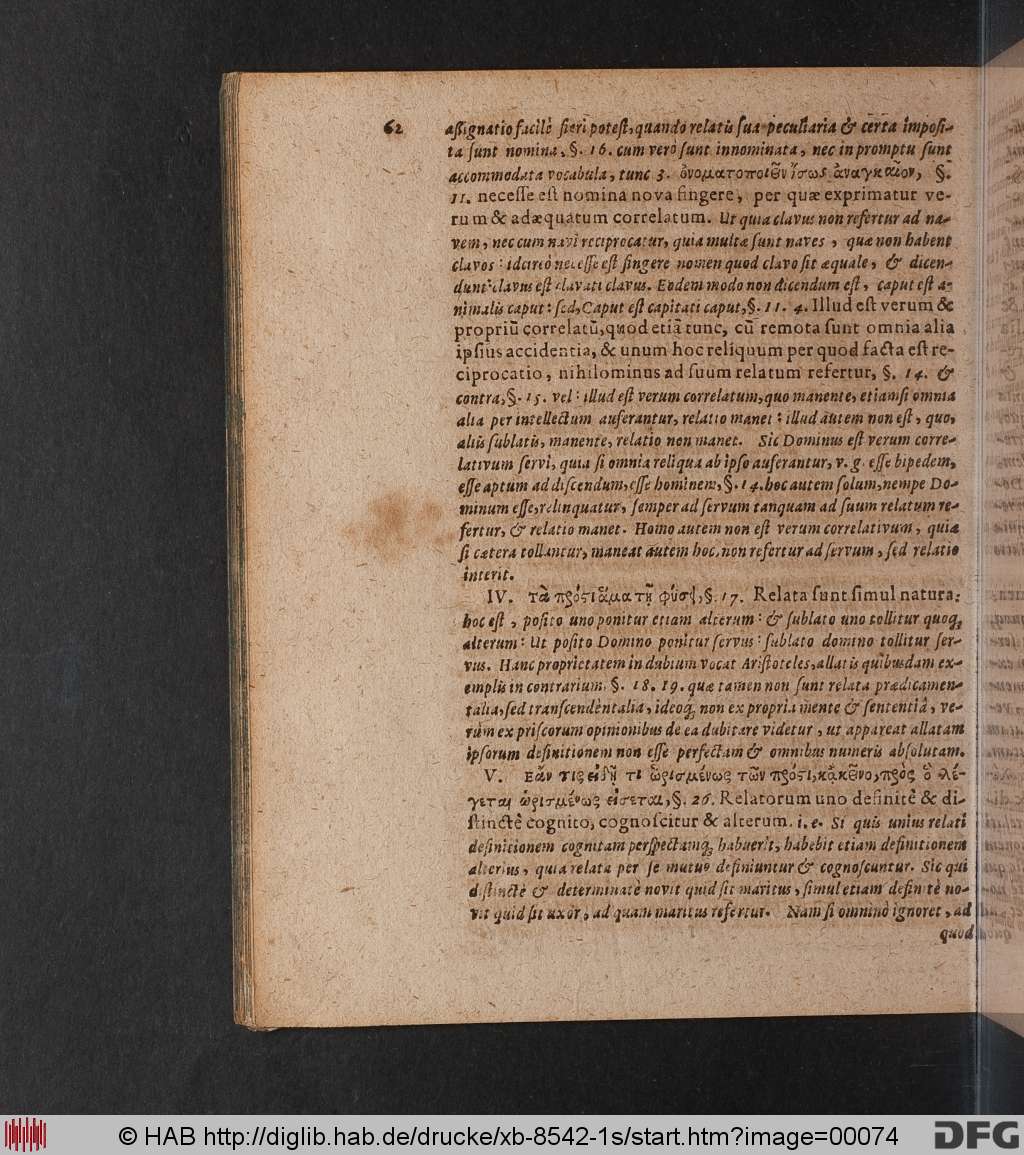 62 aſſignatio facilè fieri poteſt, quando relatis ſua peculiaria & certa impoſi-
ta ſunt nomina, §. 16. cum verò ſunt innominata, nec in promptu ſunt
accommodata vocabula, tunc 3. ὀνοματοποιεῖν ἴσως ἀναγκαῖον, §.
11. neceſſe eſt nomina nova fingere, per quæ exprimatur ve-
rum & adæquatum correlatum. Ut quia clavus non refertur ad na-
vem, nec cum navi reciprocatur, quia multæ ſunt naves, quæ non habent
clavos: idcircò neceſſe eſt fingere nomen quod clavo ſit æquale, & dicen-
dum: clavus eſt clavati clavus. Eodem modo non dicendum eſt, caput eſt a-
nimalis caput: ſed, Caput eſt capitati caput, §. 11. 4. Illud eſt verum &
propriũ correlatũ, quod etiã tunc, cũ remota ſunt omnia alia
ipſius accidentia, & unum hoc reliquum per quod facta eſt re-
ciprocatio, nihilominus ad ſuum relatum refertur, §. 14. &
contra, §. 15. vel: illud eſt verum correlatum, quo manente, etiamſi omnia
alia per intellectum auferantur, relatio manet: illud autem non eſt, quo,
aliis ſublatis, manente, relatio non manet. Sic Dominus eſt verum corre-
lativum ſervi, quia ſi omnia reliqua ab ipſo auferantur, v. g. eſſe bipedem,
eſſe aptum ad diſcendum, eſſe hominem, §. 14. hoc autem ſolum, nempe Do-
minum eſſe, relinquatur, ſemper ad ſervum tanquam ad ſuum relatum re-
fertur, & relatio manet. Homo autem non eſt verum correlativum, quia
ſi cætera tollantur, maneat autem hoc, non refertur ad ſervum, ſed relatio
interit.
IV. τὰ πρόςτι ἅμα τῇ φύσει, §. 17. Relata ſunt ſimul natura:
hoc eſt, poſito uno ponitur etiam alterum: & ſublato uno tollitur quoq;
alterum: Ut poſito Domino ponitur ſervus: ſublato domino tollitur ſer-
vus. Hanc proprietatem in dubium vocat Ariſtoteles, allatis quibusdam ex-
emplis in contrarium, §. 18. 19. quæ tamen non ſunt relata prædicamen-
talia, ſed tranſcendentalia, ideoq; non ex propria mente & ſententiâ, ve-
rùm ex priſcorum opinionibus de ea dubitare videtur, ut appareat allatam
ipſorum definitionem non eſſe perfectam & omnibus numeris abſolutam.
V. Εάν τις εἰδῇ τι ὡρισμένως τῶν πρόςτι, κᾀκεῖνο, πρὸς ὃ λέ-
γεται ὡρισμένως εἴσεται, §. 26. Relatorum uno definitè & di-
ſtinctè cognito, cognoſcitur & alterum. i. e. Si quis unius relati
definitionem cognitam perſpectamq; habuerit, habebit etiam definitionem
alterius, quia relata per ſe mutuò definiuntur & cognoſcuntur. Sic qui
diſtinctè & determinatè novit quid ſit maritus, ſimul etiam definitè no-
vit quid ſit uxor, ad quam maritus refertur. Nam ſi omninò ignoret, ad
quod
© HAB http://diglib.hab.de/drucke/xb-8542-1s/start.htm?image=00074
DFG